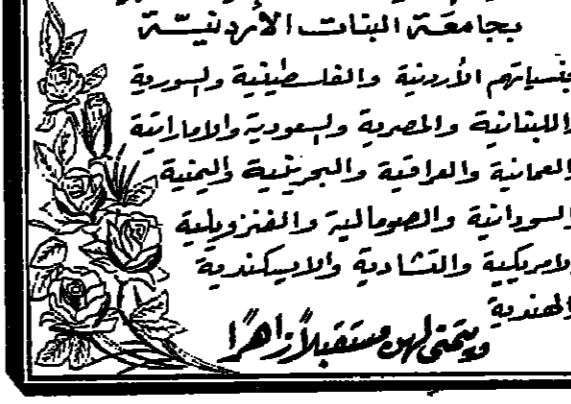 بجامعة البنات الأردنية
جنسياتهم الأردنية والفلسطينية والسورية
واللبنانية والمصرية والسعودية والاماراتية
والعمانية والعراقية والبحرينية واليمنية
والسودانية والصومالية والفنزويلية
والامريكية والتشادية والاسكندرية
والهندية
ويتمنى لهن مستقبلاً زاهرًا